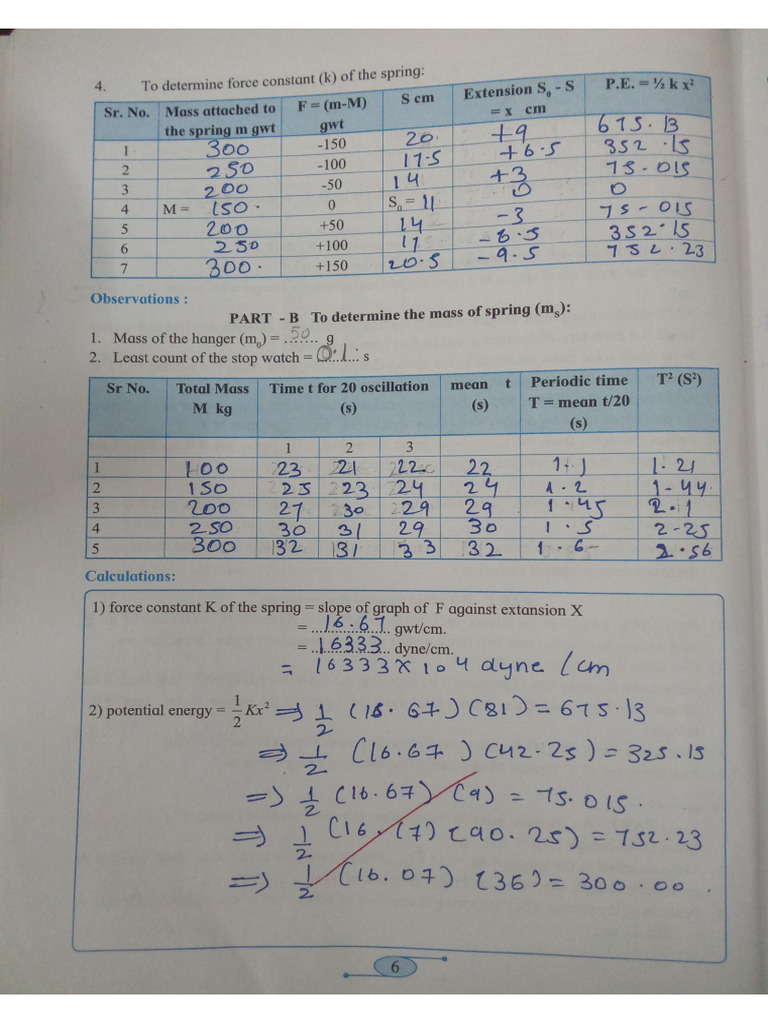 4. To determine force constant (k) of the spring:
Sr. No. Mass attached to the spring m gwt F = (m-M) gwt S cm Extension S₀ - S = x cm P.E. = ½ k x²
1 300 -150 20 +9 675.13
2 250 -100 17.5 +6.5 352.15
3 200 -50 14 +3 75.015
4 M = 150. 0 S₀ = 11 0 0
5 200 +50 14 -3 75-015
6 250 +100 17 -6.5 352.15
7 300. +150 20.5 -9.5 752.23
Observations :
PART - B To determine the mass of spring (mₛ):
1. Mass of the hanger (m₀) = ..50.. g
2. Least count of the stop watch = 0.1 s
Sr No. Total Mass M kg Time t for 20 oscillation (s) mean t (s) Periodic time T = mean t/20 (s) T² (S²)
1 2 3
1 100 23 21 22 22 1.1 1.21
2 150 25 23 24 24 1.2 1-44
3 200 27 30 29 29 1.45 2.1
4 250 30 31 29 30 1.5 2-25
5 300 32 31 33 32 1.6 2.56
Calculations:
1) force constant K of the spring = slope of graph of F against extansion X
= ...16.67... gwt/cm.
= ...16333... dyne/cm.
= 16333 x 10 4 dyne / cm
2) potential energy = 1/2 Kx² ⇒ 1/2 (16.67) (81) = 675.13
⇒ 1/2 (16.67) (42.25) = 325.15
⇒ 1/2 (16.67) (9) = 75.015.
⇒ 1/2 (16.(7) (90.25) = 752.23
⇒ 1/2 (16.07) (36) = 300.00.
6